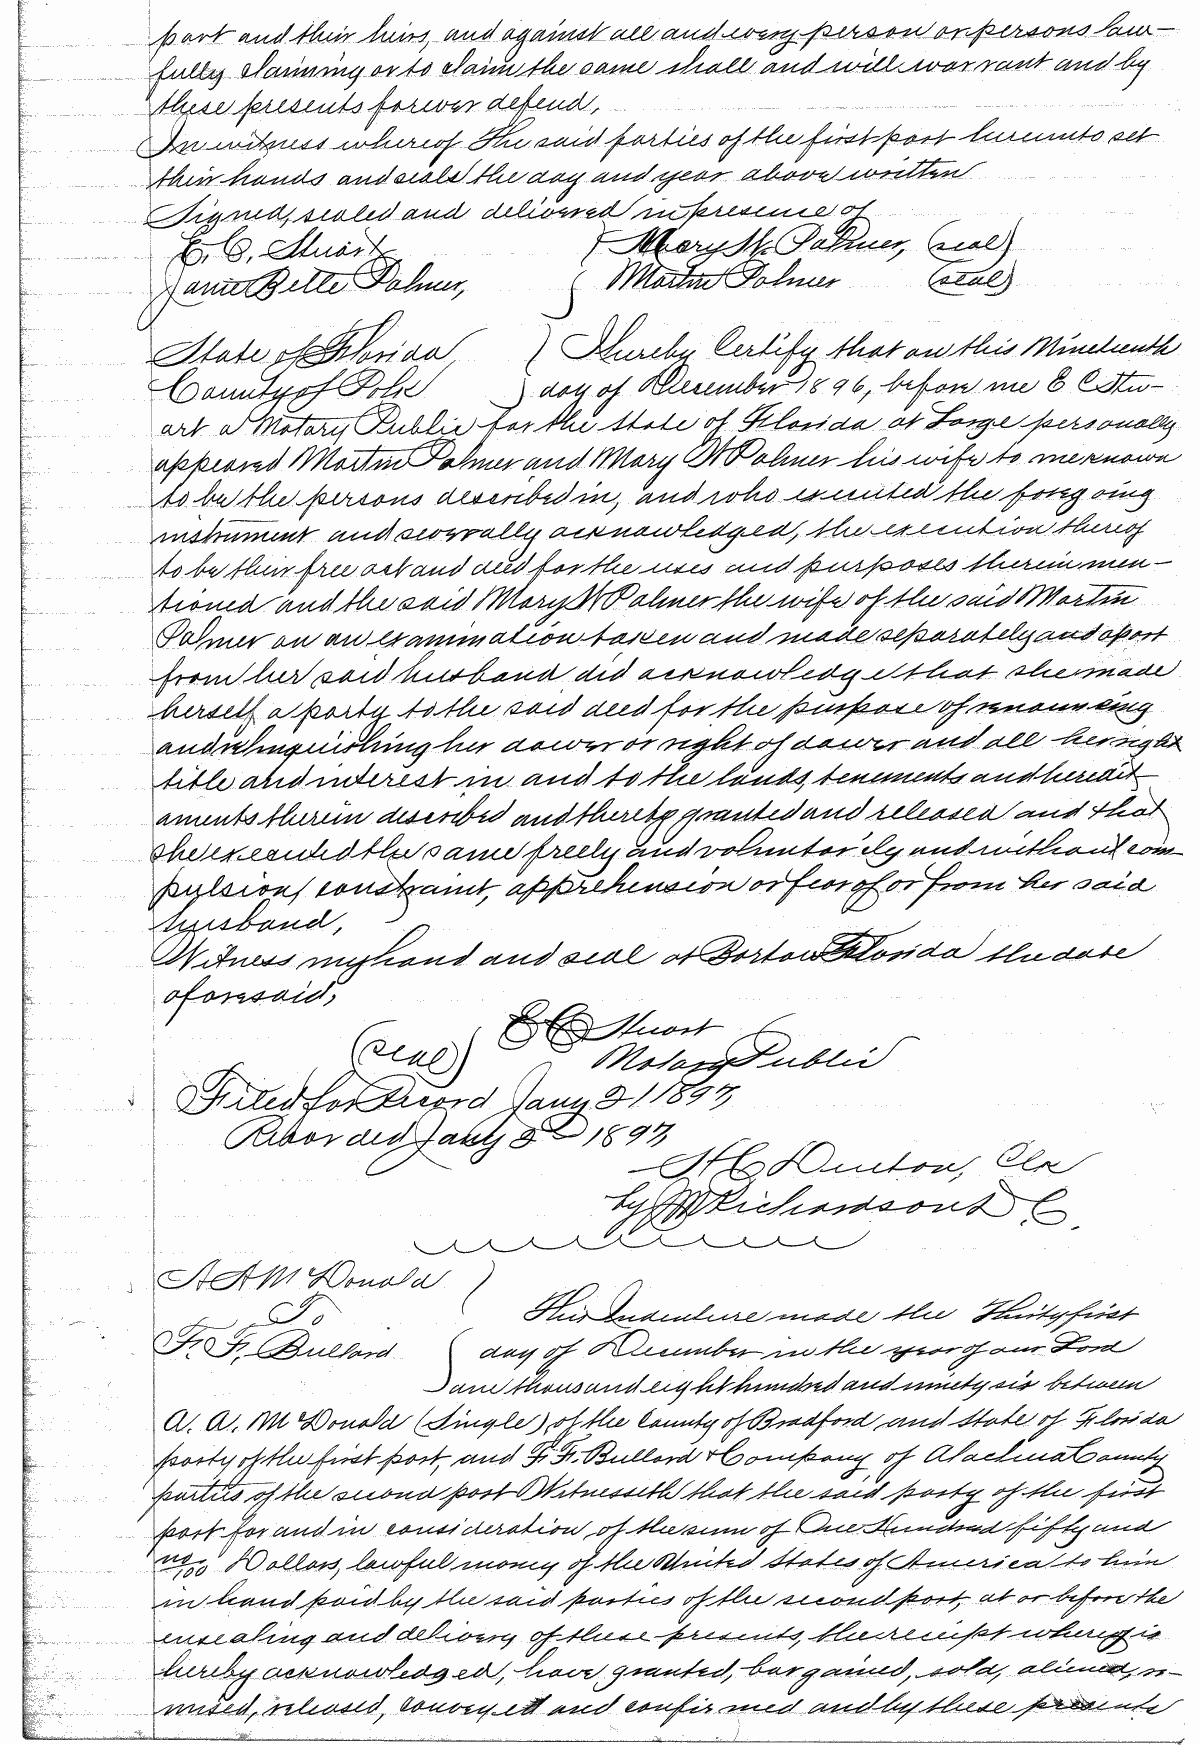 part and their heirs, and against all and every person or persons law-
fully claiming or to claim the same shall and will warrant and by
these presents forever defend,
In witness whereof The said parties of the first part hereunto set
their hands and seals the day and year above written
Signed, sealed and delivered in presence of
E. C. Stuart } Mary W. Palmer, (seal)
Janie Belle Palmer, } Martin Palmer (seal)
State of Florida, } I hereby Certify that on this Nineteenth
County of Polk } day of December 1896, before me E C Stu-
art a Notary Public for the State of Florida at Large personally
appeared Martin Palmer and Mary W Palmer his wife to me known
to be the persons described in, and who executed the foregoing
instrument and severally acknowledged, the execution thereof
to be their free act and deed for the uses and purposes therein men-
tioned and the said Mary W Palmer the wife of the said Martin
Palmer on an examination taken and made separately and apart
from her said husband did acknowledge that she made
herself a party to the said deed for the purpose of renouncing
and relinquishing her dower or right of dower and all her right
title and interest in and to the lands, tenements and heredit-
aments therein described and thereby granted and released and that
she executed the same freely and voluntarily and without com-
pulsion, constraint, apprehension or fear of or from her said
husband,
Witness my hand and seal at Bartow Florida the date
aforesaid,
E C Stuart
(seal) Notary Public
Filed for Record Jany 2 1897,
Recorded Jany 2 1897,
H C Denton, Clk
by Richardson D C.
A A McDonald }
To
F. F. Bullard
This Indenture made the Thirtyfirst
day of December in the year of our Lord
one thousand eight hundred and ninety six between
A. A. McDonald (Single) of the County of Bradford and State of Florida
party of the first part, and F. F. Bullard & Company of Alachua County
parties of the second part Witnesseth that the said party of the first
part for and in consideration of the sum of One Hundred fifty and
no/100 Dollars, lawful money of the United States of America to him
in hand paid by the said parties of the second part, at or before the
ensealing and delivery of these presents, the receipt whereof is
hereby acknowledged, have granted, bargained, sold, aliened, re-
mised, released, conveyed and confirmed and by these presents